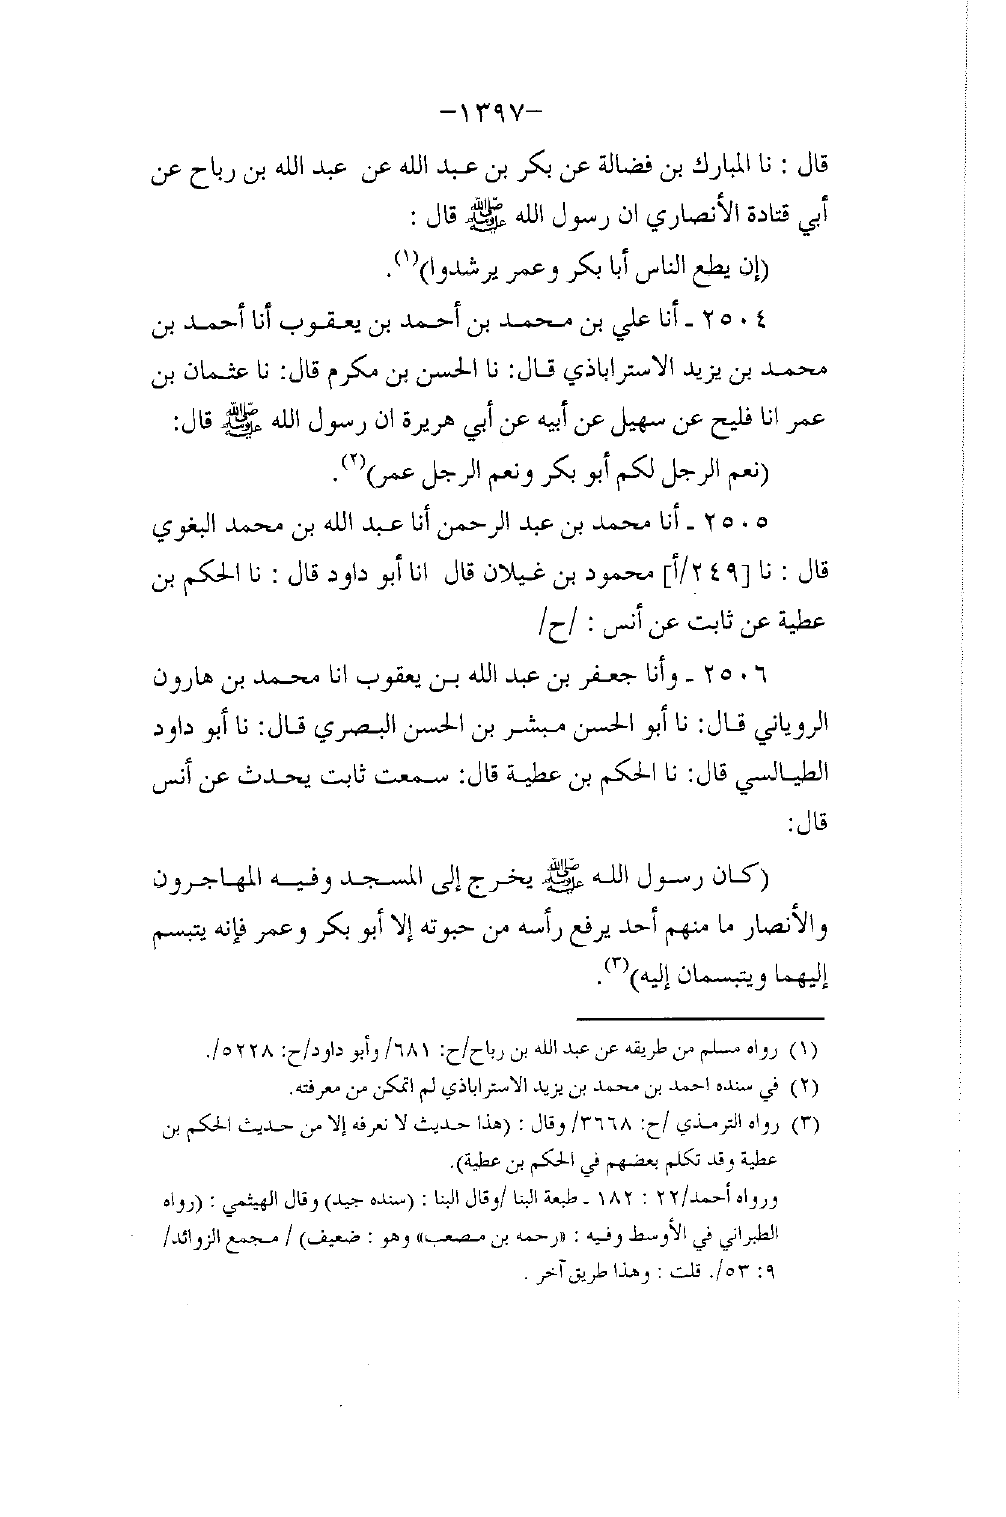 -١٣٩٧-
قال : نا المبارك بن فضالة عن بكر بن عبد الله عن عبد الله بن رباح عن
أبي قتادة الأنصاري ان رسول الله ﷺ قال :
(إن يطع الناس أبا بكر وعمر يرشدوا)(١).
٢٥٠٤ ـ أنا علي بن محمد بن أحمد بن يعقوب أنا أحمد بن
محمد بن يزيد الاستراباذي قال: نا الحسن بن مكرم قال: نا عثمان بن
عمر انا فليح عن سهيل عن أبيه عن أبي هريرة ان رسول الله ﷺ قال:
(نعم الرجل لكم أبو بكر ونعم الرجل عمر)(٢).
٢٥٠٥ ـ أنا محمد بن عبد الرحمن أنا عبد الله بن محمد البغوي
قال : نا [٢٤٩/أ] محمود بن غيلان قال انا أبو داود قال : نا الحكم بن
عطية عن ثابت عن أنس : /ح/
٢٥٠٦ ـ وأنا جعفر بن عبد الله بن يعقوب انا محمد بن هارون
الروياني قال: نا أبو الحسن مبشر بن الحسن البصري قال: نا أبو داود
الطيالسي قال: نا الحكم بن عطية قال: سمعت ثابت يحدث عن أنس
قال:
(كان رسول الله ﷺ يخرج إلى المسجد وفيه المهاجرون
والأنصار ما منهم أحد يرفع رأسه من حبوته إلا أبو بكر وعمر فإنه يتبسم
إليهما ويتبسمان إليه)(٣).
(١) رواه مسلم من طريقه عن عبد الله بن رباح/ح: ٦٨١/ وأبو داود/ح: ٥٢٢٨/.
(٢) في سنده احمد بن محمد بن يزيد الاستراباذي لم اتمكن من معرفته.
(٣) رواه الترمذي /ح: ٣٦٦٨/ وقال : (هذا حديث لا نعرفه إلا من حديث الحكم بن
عطية وقد تكلم بعضهم في الحكم بن عطية).
ورواه أحمد/٢٢ : ١٨٢ ـ طبعة البنا /وقال البنا : (سنده جيد) وقال الهيثمي : (رواه
الطبراني في الأوسط وفيه : «رحمه بن مصعب» وهو : ضعيف) / مجمع الزوائد/
٩: ٥٣/. قلت : وهذا طريق آخر .